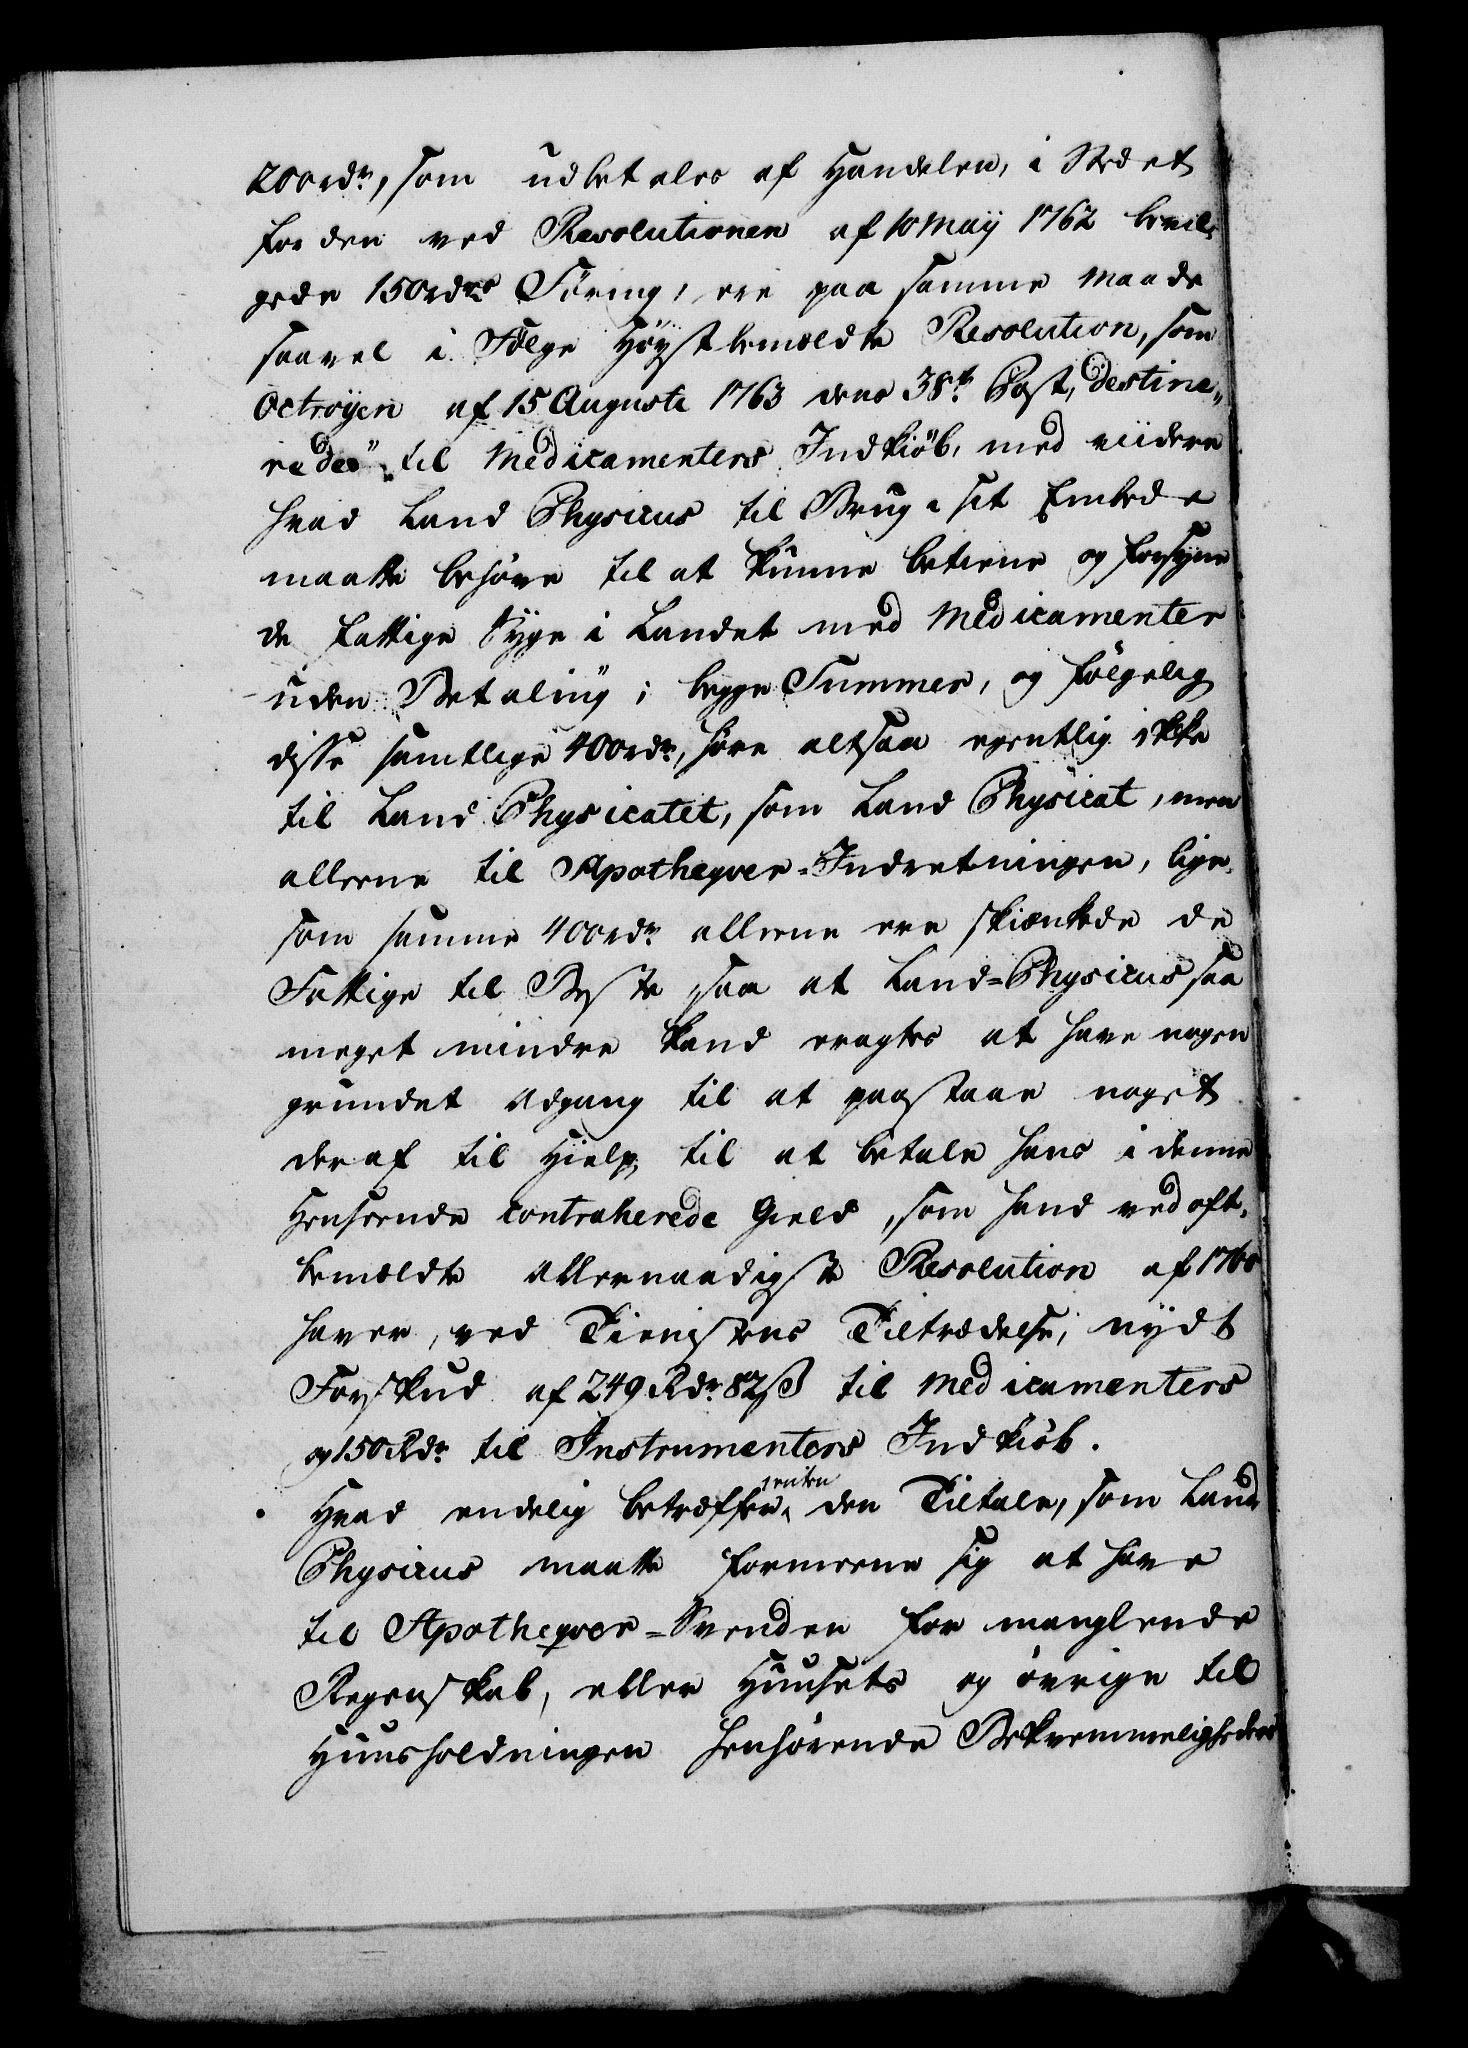 200rdr, som udbetales af Handelen, i Stedet
for den ved Resolutionen af 10 Maij 1762 bevil-
gede 150rdrs Föring, ere paa samme Maade
saavel i Følge Høystbemeldte Resolution, som
Octroÿen af 15 Augusti 1763 dens 38te Post, destine-
redes til Medicamenters Indkiöb, med viidere
hvad Land Physicus til Brug i sit Embede
maatte behøve til at kunne betiene og forsyne
de fattige Syge i Landet med Medicamenter
uden Betaling; begge Summer, og følgelig
disse samtlige 400rdr, høre altsaa egentlig ikke
til Land Physicatet, som Land Physicat, men
alleene til Apotheqver-Indretningen, lige-
som samme 400rdr alleene ere skienkede de
Fattige til Beste, saa at Land-Physicus saa
meget mindre kand eragtes at have nogen
grundet Adgang til at paastaae noget
deraf til Hielp, til at betale hans i denne
Henseende contraherede Gield, som hand ved oft-
bemeldte Allernaadigste Resolution af 1760
haver, ved Tienistens Tiltrædelse, nydt
Forskud af 249 Rdr 82 ß til Medicamenters
og 150 Rdr til Instrumenters Indkiöb.
Hvad endelig betræffer enten den Tiltale, som Land
Physicus maatte formeene sig at have
til Apotheqver-Svenden for manglende
Regenskab, eller Huusets og övrige til
Huusholdningen henhørende Beqvemmeligheder